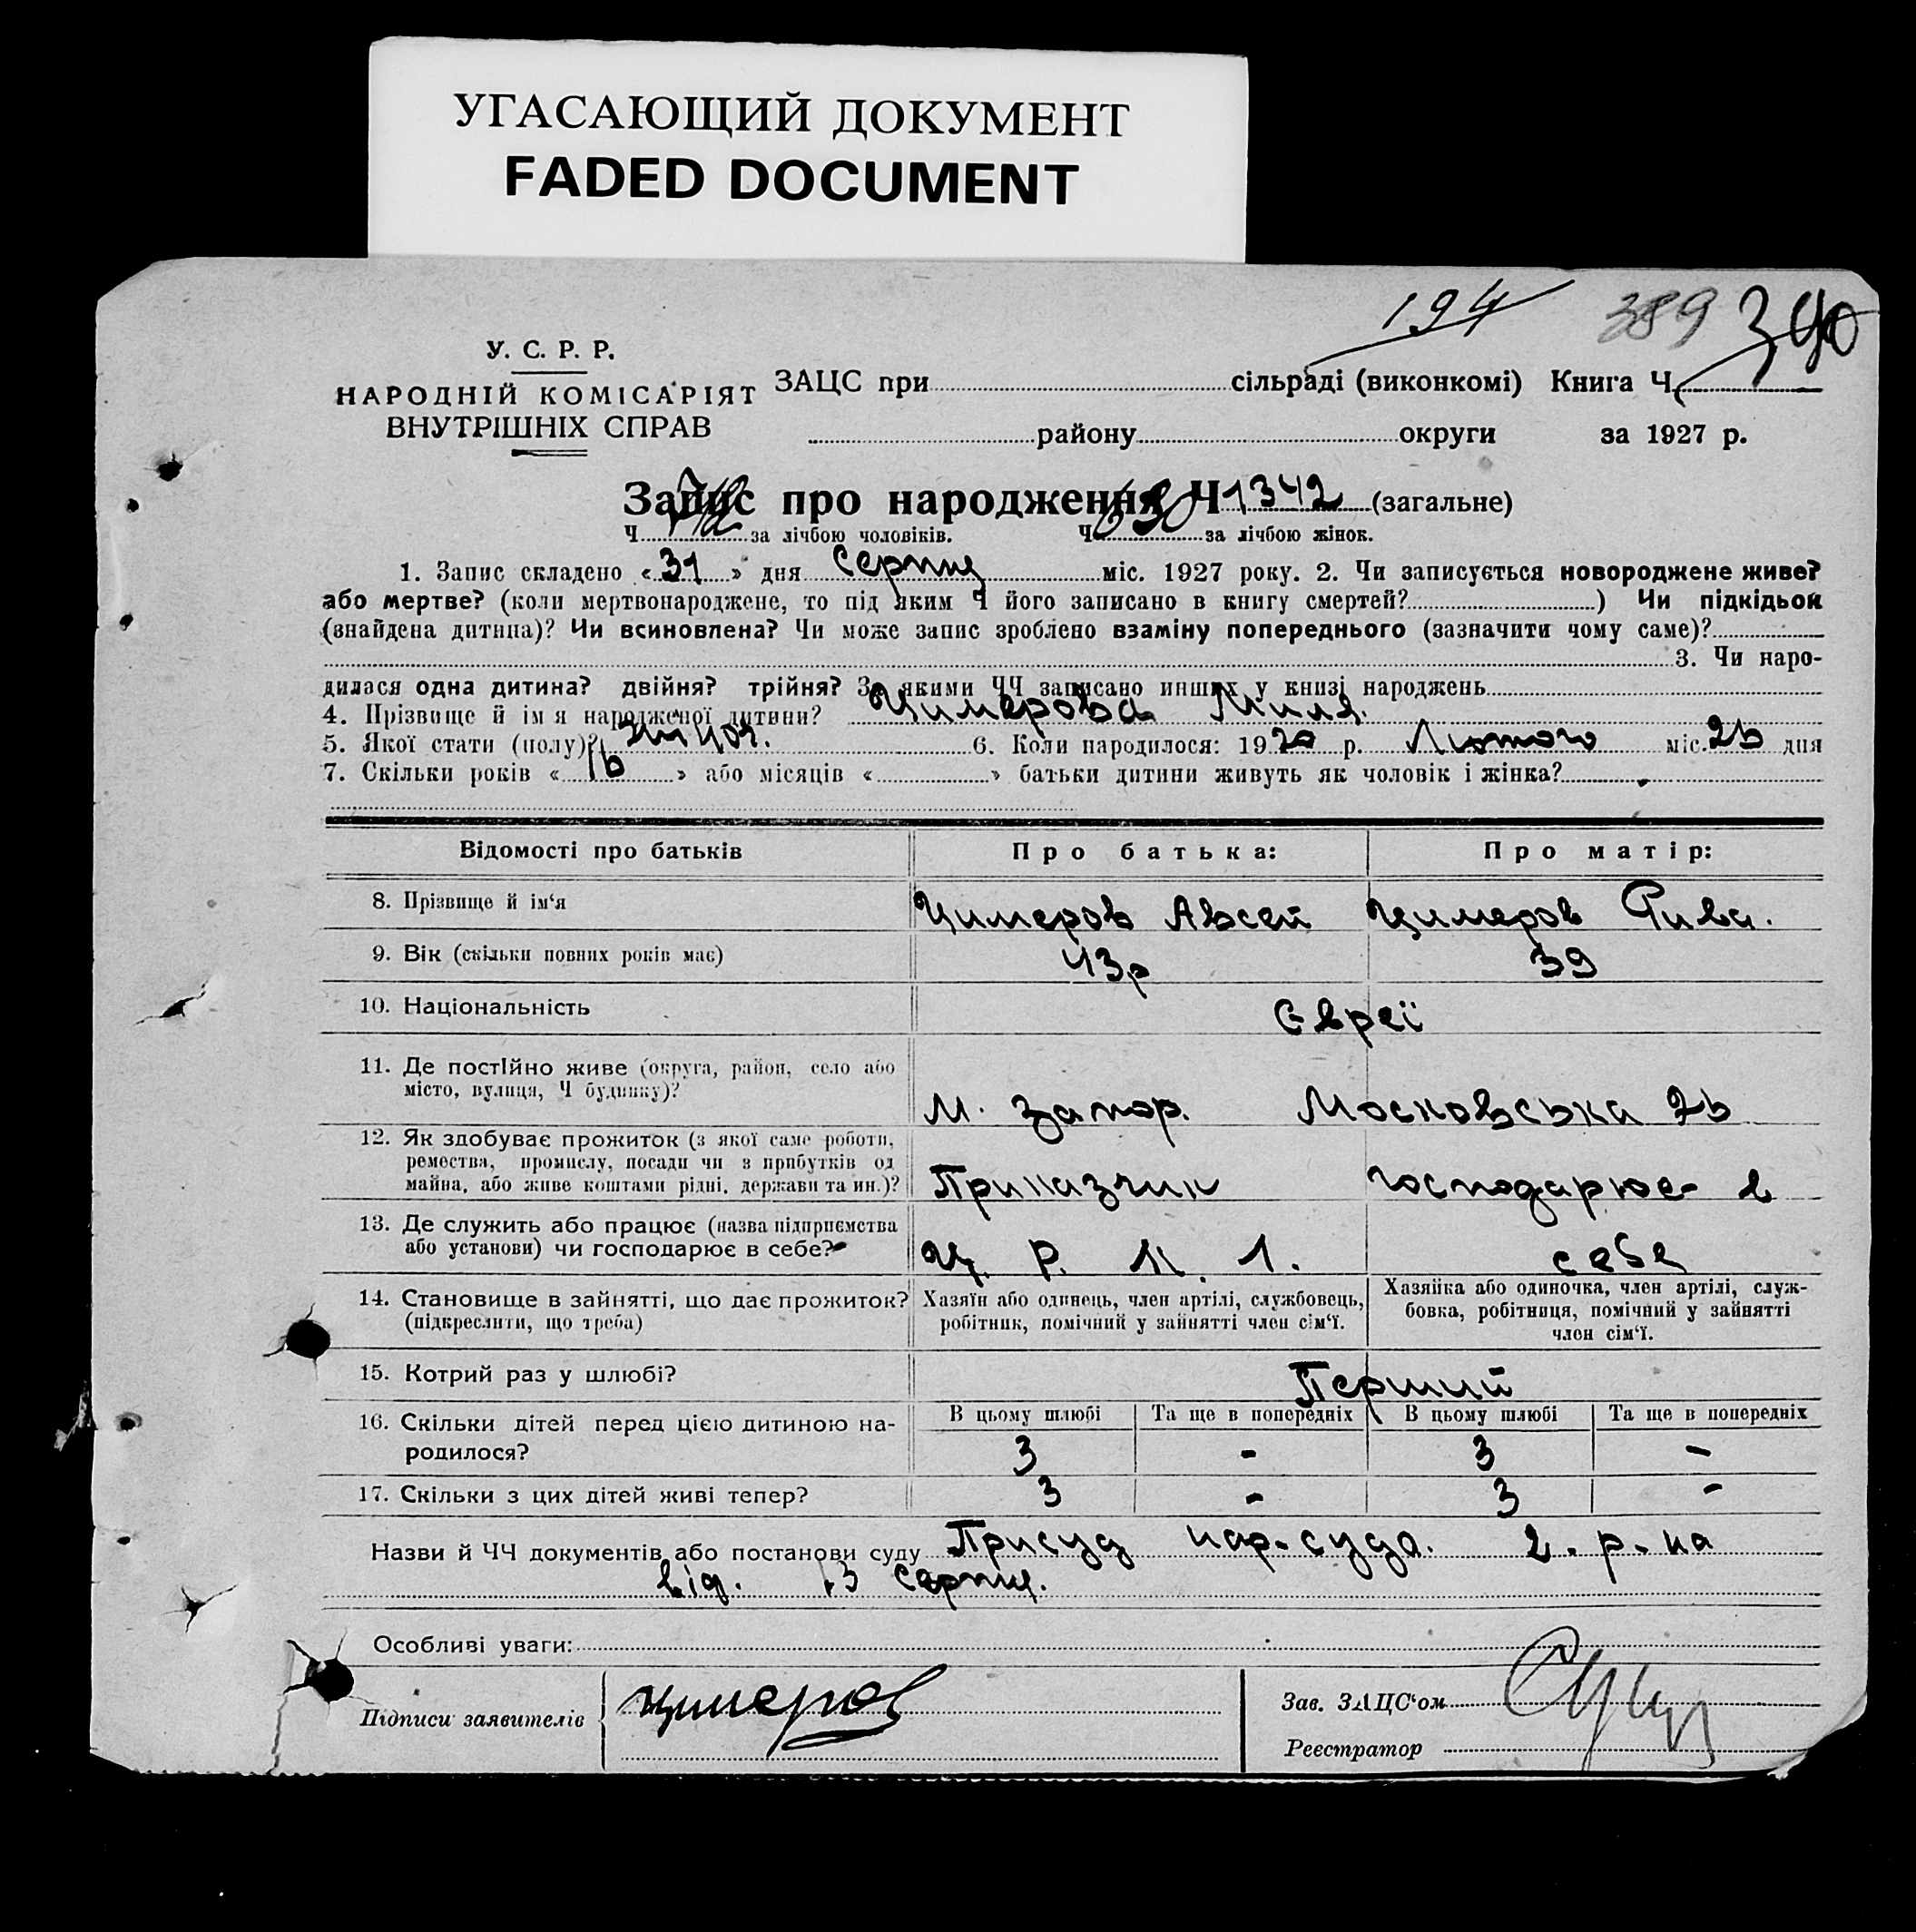 УГАСАЮЩИЙ ДОКУМЕНТ
FADED DOCUMENT
194 389 390
У. С. Р. Р.
НАРОДНІЙ КОМІСАРІЯТ
ВНУТРІШНІХ СПРАВ
ЗАЦС при сільраді (виконкомі) Книга Ч.
району округи за 1927 р.
Запис про народження Ч 1342 (загальне)
Ч за лічбою чоловіків. Ч 630 за лічбою жінок.
1. Запис складено «31» дня Серпня міс. 1927 року. 2. Чи записується новороджене живе?
або мертве? (коли мертвонароджене, то під яким Ч його записано в книгу смертей? ) Чи підкідьок
(знайдена дитина)? Чи всиновлена? Чи може запис зроблено взаміну попереднього (зазначити чому саме)?
3. Чи наро-
дилася одна дитина? двійня? трійня? За якими ЧЧ записано инших у книзі народжень
4. Прізвище й ім'я народженої дитини? Цимерова Миля.
5. Якої статі (полу)? жіноч. 6. Коли народилося: 1920 р. Лютого міс. 26 дня
7. Скільки років «16» або місяців « » батьки дитини живуть як чоловік і жінка?
Відомості про батьків Про батька: Про матір:
8. Прізвище й ім‘я Цимеров Авсей Цимеров Рива.
9. Вік (скільки повних років має) 43р 39
10. Національність Євреї
11. Де постІйно живе (округа, район, село або
місто, вулиця, Ч будинку)? М. Запор. Московська 26
12. Як здобуває прожиток (з якої саме роботи,
ремества, промислу, посади чи з прибутків од
майна, або живе коштами рідні, держави та ин.)? Приказчик господарює в
13. Де служить або працює (назва підприємства
або установи) чи господарює в себе? Ц. Р. К. 1. себе
14. Становище в зайнятті, що дає прожиток?
(підкреслити, що треба)
Хазяїн або одинець, член артілі, службовець,
робітник, помічний у зайнятті член сім‘ї.
Хазяйка або одиночка, член артілі, служ-
бовка, робітниця, помічний у зайнятті
член сім‘ї.
15. Котрий раз у шлюбі? Перший
16. Скільки дітей перед цією дитиною на-
родилося?
В цьому шлюбі Та ще в попередніх В цьому шлюбі Та ще в попередніх
3 - 3 -
17. Скільки з цих дітей живі тепер? 3 - 3 -
Назви й ЧЧ документів або постанови суду Присуд нар. суда. 2. р-на
від. 13 Серпня.
Особливі уваги:
Підписи заявителів Цимеров
Зав. ЗАЦС‘ом
Реєстратор